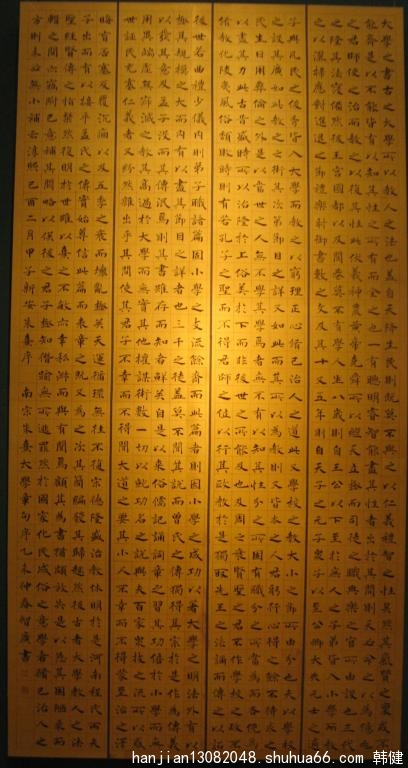 大學之書古之大學所以教人之法也蓋自天降生民則既莫不與之以仁義禮智之性矣然其氣質之稟或不
能齊是以不能皆有以知其性之所有而全之也一有聰明睿智能盡其性者出於其間則天必命之以為億兆
之君師使之治而教之以復其性此伏羲神農黃帝堯舜所以繼天立極而司徒之職典樂之官所由設也三代
之隆其法寖備然後王宮國都以及閭巷莫不有學人生八歲則自王公以下至於庶人之子弟皆入小學而教
之以灑掃應對進退之節禮樂射御書數之文及其十有五年則自天子之元子眾子以至公卿大夫元士之適
子與凡民之俊秀皆入大學而教之以窮理正心脩己治人之道此又學校之教大小之節所由分也夫以學校
之設其廣如此教之之術其次第節目之詳又如此而其所以為教則又皆本之人君躬行心得之餘不待求之
民生日用彝倫之外是以當世之人無不學其學焉者無不有以知其性分之所固有職分之所當為而各俛焉
以盡其力此古昔盛時所以治隆於上俗美於下而非後世之所能及也及周之衰賢聖之君不作學校之政不
脩教化陵夷風俗頹敗時則有若孔子之聖而不得君師之位以行其政教於是獨取先王之法誦而傳之以詔
後世若曲禮少儀內則弟子職諸篇固小學之支流餘裔而此篇者則因小學之成功以著大學之明法外有以
極其規模之大而內有以盡其節目之詳者也三千之徒蓋莫不聞其說而曾氏之傳獨得其宗於是作為傳義
以發其意及孟子沒而其傳泯焉則其書雖存而知者鮮矣自是以來俗儒記誦詞章之習其功倍於小學而無
用異端虛無寂滅之教其高過於大學而無實其他權謀術數一切以就功名之說與夫百家眾技之流所以惑
世誣民充塞仁義者又紛然雜出乎其間使其君子不幸而不得聞大道之要其小人不幸而不得蒙至治之澤
晦盲否塞反覆沉痼以及五季之衰而壞亂極矣天運循環無往不復宋德隆盛治教休明於是河南程氏兩夫
子出而有以接乎孟氏之傳實始尊信此篇而表章之既又為之次其簡編發其歸趣然後古者大學教人之法
聖經賢傳之指粲然復明於世雖以熹之不敏亦幸私淑而與有聞焉顧其為書猶頗放失是以忘其固陋采而
輯之間亦竊附己意補其闕略以俟後之君子極知僭踰無所逃罪然於國家化民成俗之意學者脩己治人之
方則未必無小補云淳熙己酉二月甲子新安朱熹序 南宋朱熹大學章句序乙未仲春智廣書
hanjian13082048.shuhua66.com 韩健